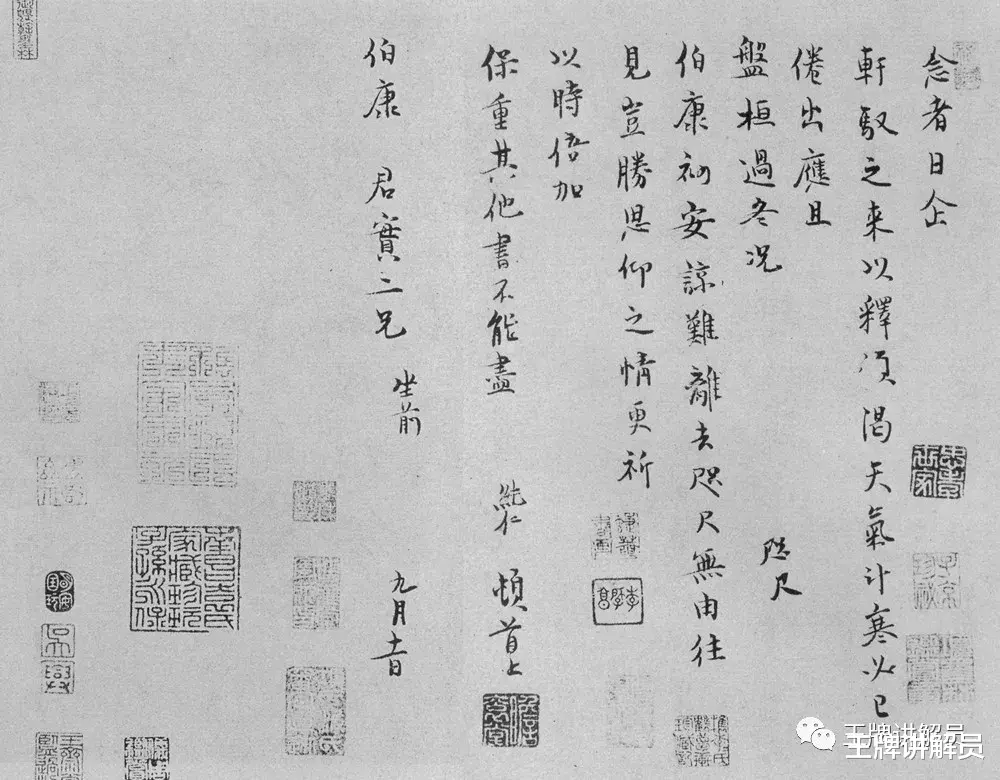 念者日企
軒馭之来以釋傾渴天氣計寒必已
倦出應且
盤桓過冬况
咫尺
伯康初安諒難離去咫尺無由往
見豈勝思仰之情更祈
以時倍加
保重其他書不能盡
純仁 頓首上
伯康 君實二兄 坐前
九月十一日
王牌讲解员
王牌讲解员